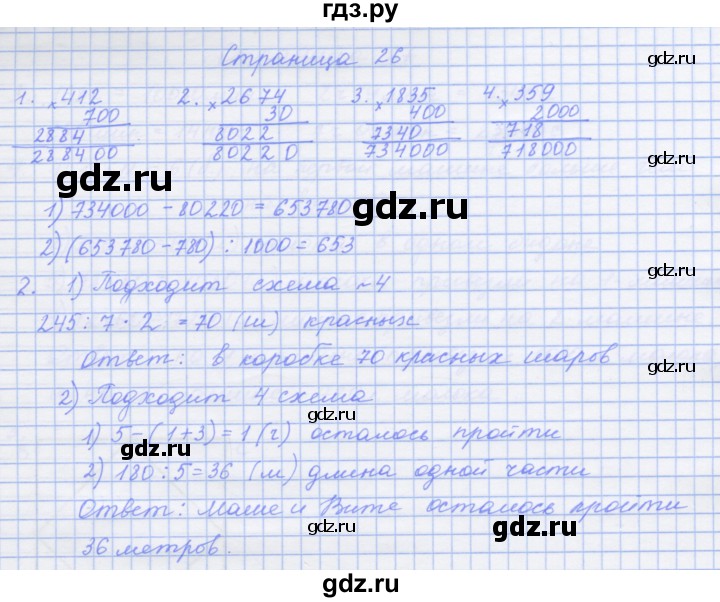 гдз.ру
Страница 26
gdz.ru
1. ×412 2. ×2674 3. ×1835 4. ×359
700 30 400 2000
2884 8022 7340 718
288400 80220 734000 718000
gdz.ru
gdz.ru
1) 734000 - 80220 = 653780
gdz.ru
2) (653780 - 780) : 1000 = 653
gdz.ru
2. 1) Подходит схема ~4
245 : 7 · 2 = 70 (ш) красных
Ответ: в коробке 70 красных шаров
gdz.ru
2) Подходит 4 схема
gdz.ru
1) 5 - (1+3) = 1 (г) осталось пройти
gdz.ru
gdz.ru
2) 180 : 5 = 36 (м) длина одной части
Ответ: Маше и Вите осталось пройти
gdz.ru
gdz.ru
36 метров.
gdz.ru